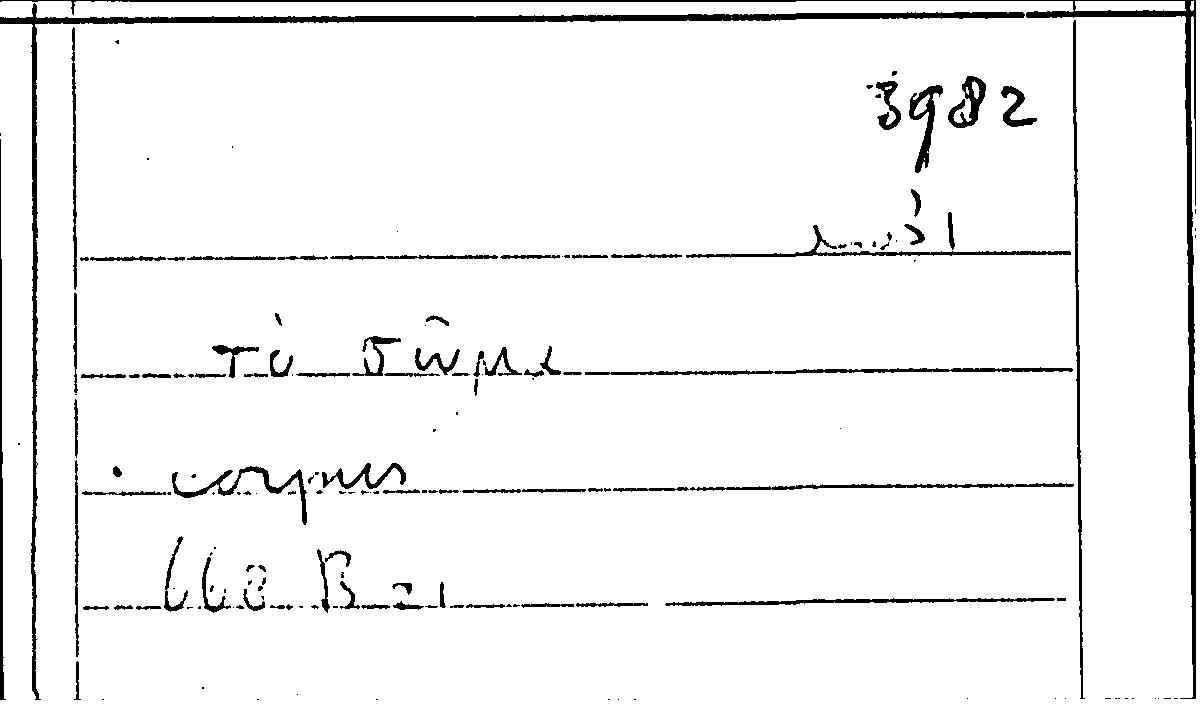 3982
τὸ σῶμα
· corpus
668 B 21